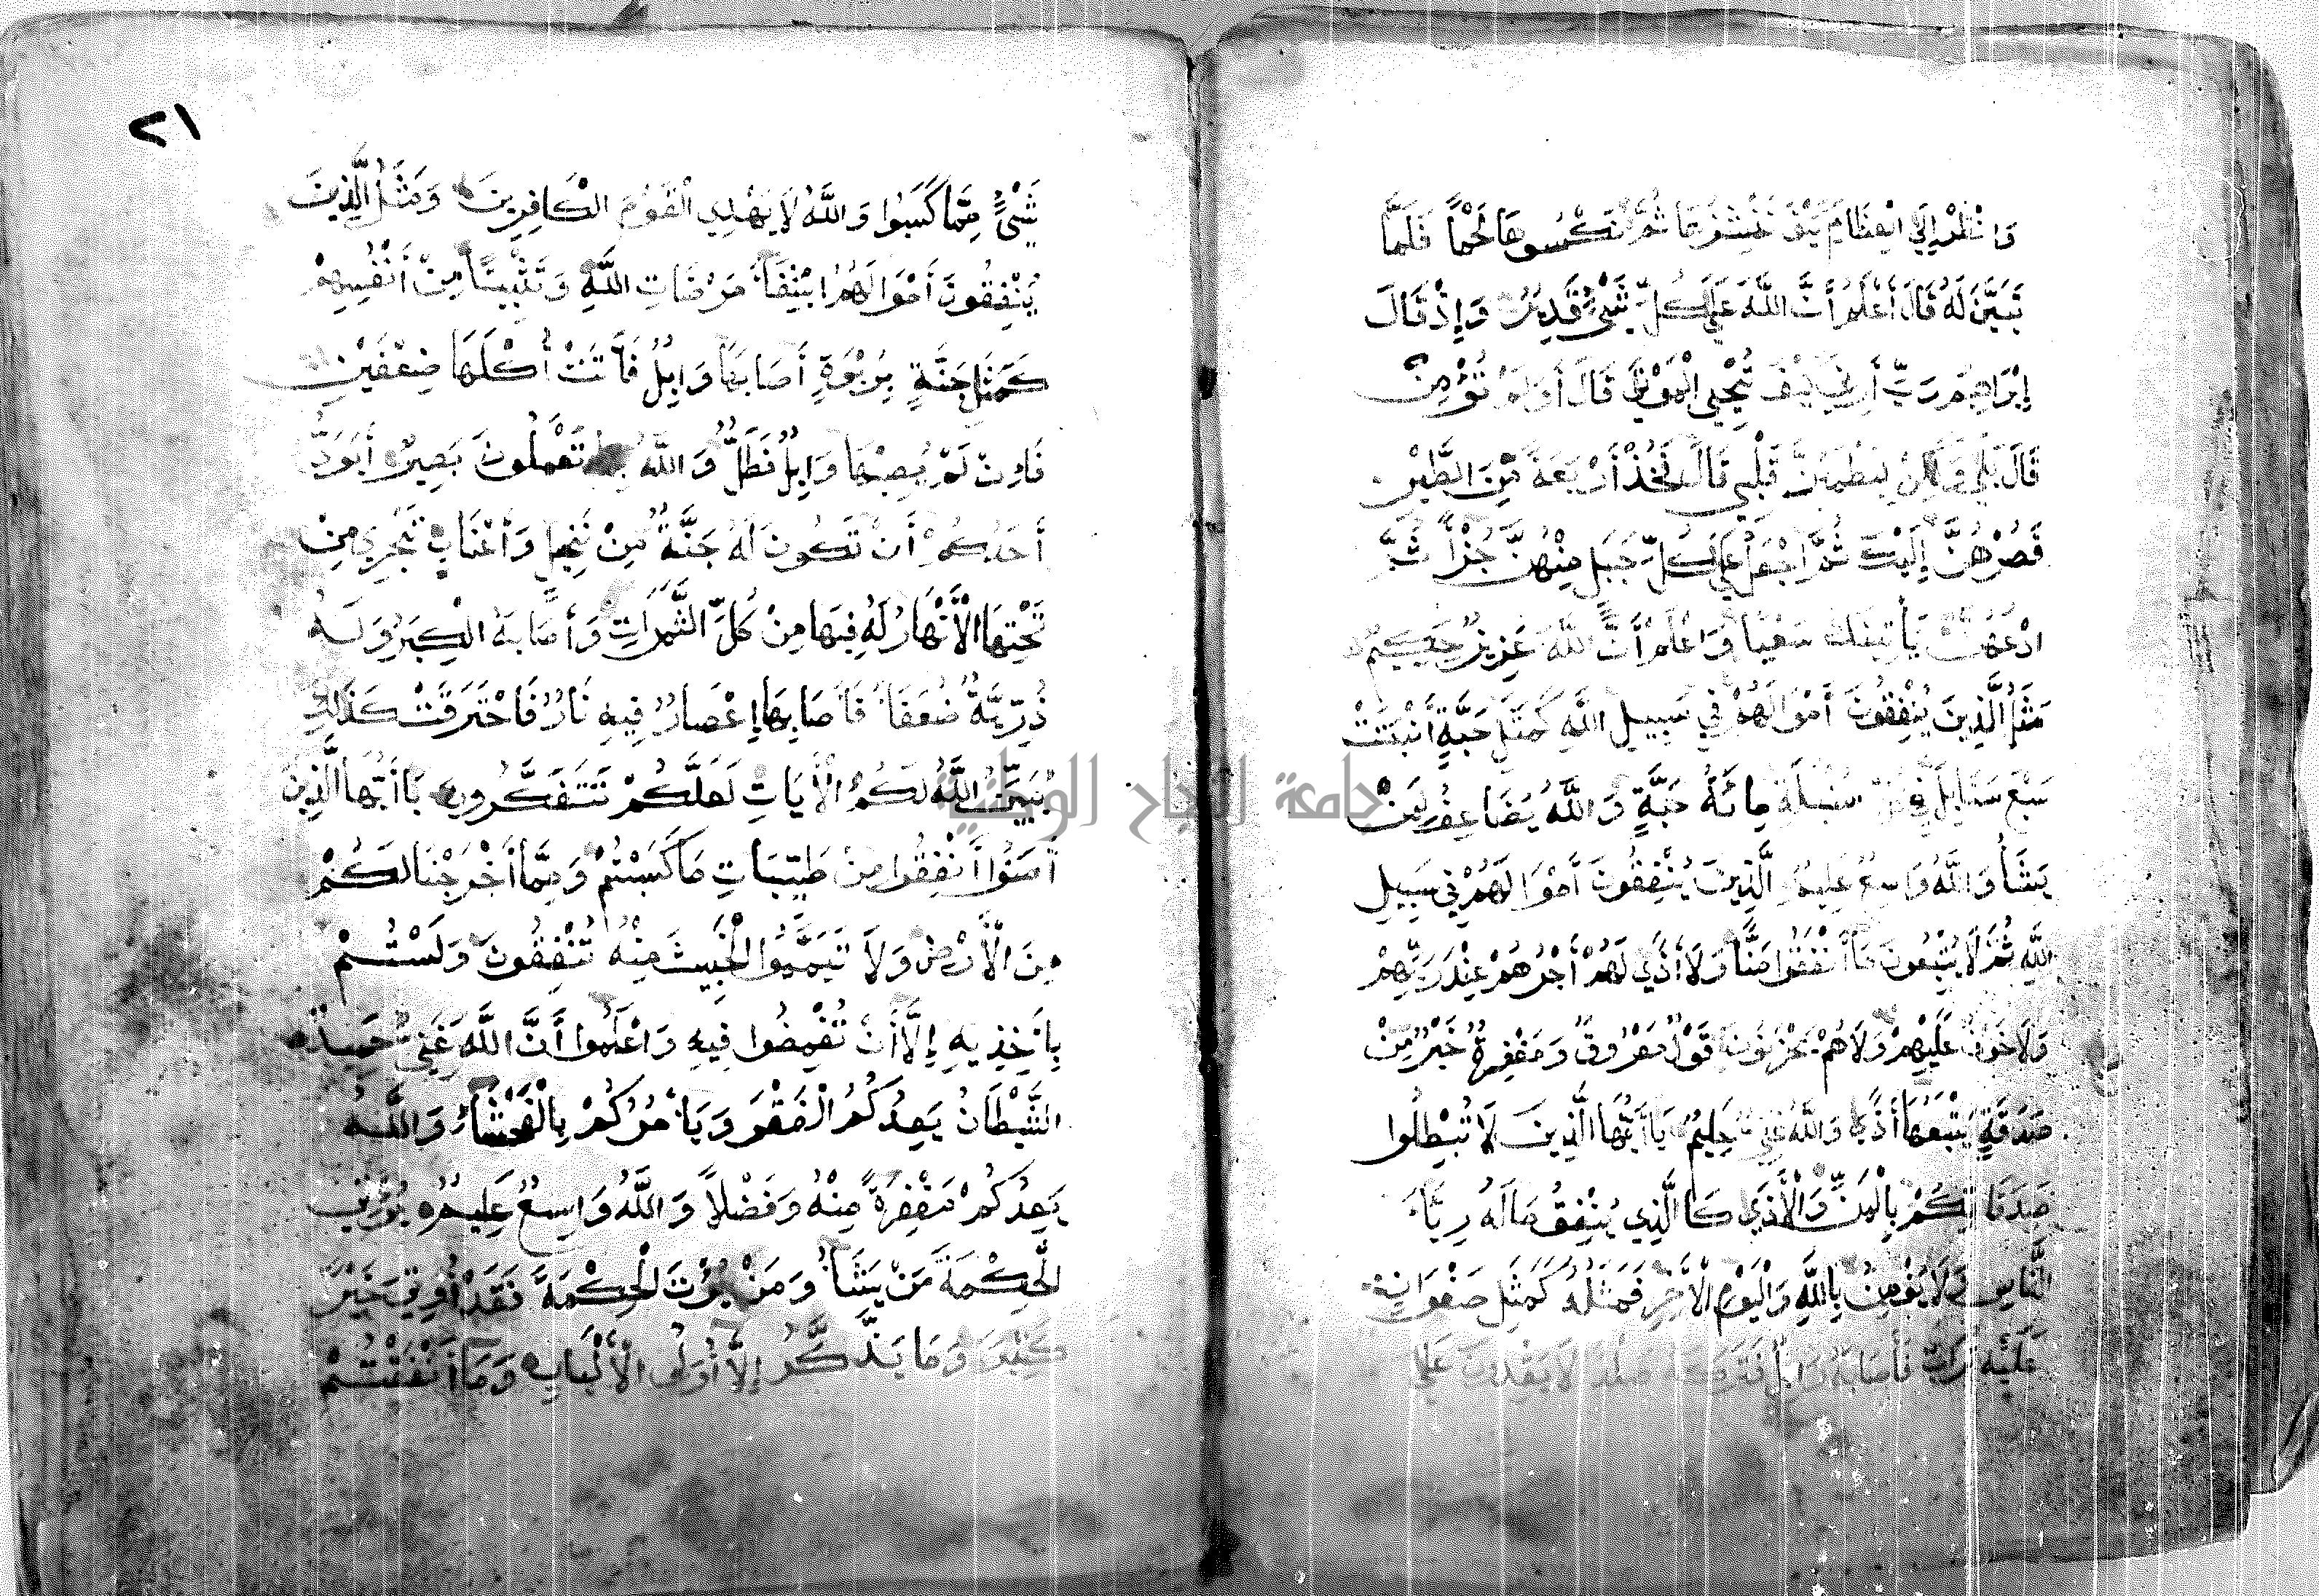 وَانْظُرْ إِلَى الْعِظَامِ كَيْفَ نُنْشِزُهَا ثُمَّ نَكْسُوهَا لَحْماً فَلَمَّا
تَبَيَّنَ لَهُ قَالَ أَعْلَمُ أَنَّ اللَّهَ عَلَى كُلِّ شَيْءٍ قَدِيرٌ وَإِذْ قَالَ
إِبْرَاهِيمَ رَبِّ أَرِنِي كَيْفَ تُحْيِي الْمَوْتَى قَالَ أَوَلَمْ تُؤْمِنْ
قَالَ بَلَى وَلَكِنْ لِيَطْمَئِنَّ قَلْبِي قَالَ فَخُذْ أَرْبَعَةً مِّنَ الطَّيْرِ
فَصُرْهُنَّ إِلَيْكَ ثُمَّ اجْعَلْ عَلَى كُلِّ جَبَلٍ مِنْهُنَّ جُزْأً ثُمَّ
ادْعُهُنَّ يَأْتِينَكَ سَعْياً وَاعْلَمْ أَنَّ اللَّهَ عَزِيزٌ حَكِيمٌ
مَثَلُ الَّذِينَ يُنْفِقُونَ أَمْوَالَهُمْ فِي سَبِيلِ اللَّهِ كَمَثَلِ حَبَّةٍ أَنْبَتَتْ
سَبْعَ سَنَابِلَ فِي سُنْبُلَةٍ مِائَةُ حَبَّةٍ وَاللَّهُ يُضَاعِفُ لِمَنْ
يَشَأُ وَاللَّهُ وَاسِعٌ عَلِيمٌ الَّذِينَ يُنْفِقُونَ أَمْوَالَهُمْ فِي سَبِيلِ
اللَّهِ ثُمَّ لَا يُتْبِعُونَ مَا أَنْفَقُوا مَنًّا وَلَا أَذًى لَهُمْ أَجْرُهُمْ عِنْدَ رَبِّهِمْ
وَلَا خَوْفٌ عَلَيْهِمْ وَلَا هُمْ يَحْزَنُونَ قَوْلٌ مَعْرُوفٌ وَمَغْفِرَةٌ خَيْرٌ مِنْ
صَدَقَةٍ يَتْبَعُهَا أَذًى وَاللَّهُ غَنِيٌّ حَلِيمٌ يَا أَيُّهَا الَّذِينَ لَا تُبْطِلُوا
صَدَقَاتِكُمْ بِالْمَنِّ وَالْأَذَى كَالَّذِي يُنْفِقُ مَالَهُ رِيَاءَ
النَّاسِ وَلَا يُؤْمِنُ بِاللَّهِ وَالْيَوْمِ الْأَخِرِ فَمَثَلُهُ كَمَثَلِ صَفْوَانٍ
عَلَيْهِ تُرَابٌ فَأَصَابَهُ وَابِلٌ فَتَرَكَهُ صَلْداً لَا يَقْدِرُونَ عَلَى
٢١
شَيْءٍ مِمَّا كَسَبُوا وَاللَّهُ لَا يَهْدِي الْقَوْمَ الْكَافِرِينَ وَمَثَلُ الَّذِينَ
يُنْفِقُونَ أَمْوَالَهُمُ ابْتِغَاءَ مَرْضَاتِ اللَّهِ وَتَثْبِيتاً مِنْ أَنْفُسِهِمْ
كَمَثَلِ جَنَّةٍ بِرُبْوَةٍ أَصَابَهَا وَابِلٌ فَأَتَتْ أُكْلَهَا ضِعْفَيْنِ
فَإِنْ لَمْ يُصِبْهَا وَابِلٌ فَطَلٌّ وَاللَّهُ بِمَا تَعْمَلُونَ بَصِيرٌ أَيَوَدُّ
أَحَدُكُمْ أَنْ تَكُونَ لَهُ جَنَّةٌ مِنْ نَخِيلٍ وَأَعْنَابٍ تَجْرِي مِنْ
تَحْتِهَا الْأَنْهَارُ لَهُ فِيهَا مِنْ كُلِّ الثَّمَرَاتِ وَأَصَابَهُ الْكِبَرُ وَلَهُ
ذُرِّيَّةٌ ضُعَفَاءُ فَأَصَابَهَا إِعْصَارٌ فِيهِ نَارٌ فَاحْتَرَقَتْ كَذَلِكَ
يُبَيِّنُ اللَّهُ لَكُمُ الْأَيَاتِ لَعَلَّكُمْ تَتَفَكَّرُونَ يَا أَيُّهَا الَّذِينَ
أَمَنُوا أَنْفِقُوا مِنْ طَيِّبَاتِ مَا كَسَبْتُمْ وَمِمَّا أَخْرَجْنَا لَكُمْ
مِنَ الْأَرْضِ وَلَا تَيَمَّمُوا الْخَبِيثَ مِنْهُ تُنْفِقُونَ وَلَسْتُمْ
بِأَخِذِيهِ إِلَّا أَنْ تُغْمِضُوا فِيهِ وَاعْلَمُوا أَنَّ اللَّهَ غَنِيٌّ حَمِيدٌ
الشَّيْطَانُ يَعِدُكُمُ الْفَقْرَ وَيَأْمُرُكُمْ بِالْفَحْشَاءِ وَاللَّهُ
يَعِدُكُمْ مَغْفِرَةً مِنْهُ وَفَضْلاً وَاللَّهُ وَاسِعٌ عَلِيمٌ يُؤْتِي
الْحِكْمَةَ مَنْ يَشَأُ وَمَنْ يُؤْتَ الْحِكْمَةَ فَقَدْ أُوتِيَ خَيْراً
كَثِيراً وَمَا يَذَّكَّرُ إِلَّا أُولُى الْأَلْبَابِ وَمَا أَنْفَقْتُمْ
جامعة النجاح الوطنية